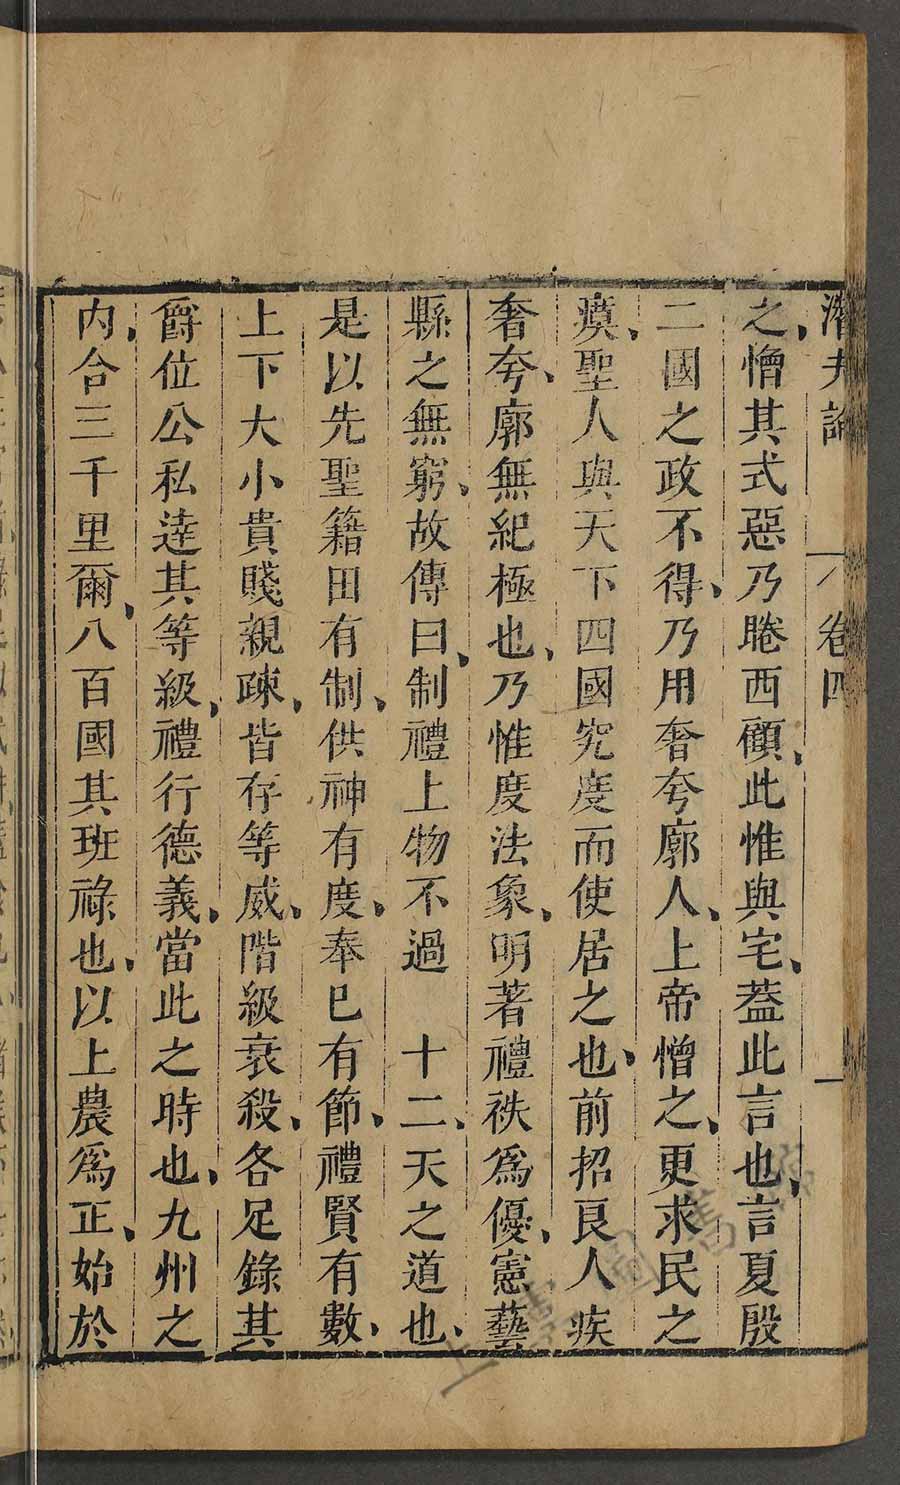 潛夫論 卷四 一
之憎其式惡乃睠西顧此惟與宅葢此言也言夏殷
二國之政不得乃用奢夸廓人上帝憎之更求民之
瘼聖人與天下四國究度而使居之也前招良人疾
奢夸廓無紀極也乃惟度法象明著禮祑爲優憲藝
縣之無窮故傳曰制禮上物不過 十二天之道也
是以先聖籍田有制供神有度奉已有節禮賢有數
上下大小貴賤親疎皆存等威階級衰殺各足錄其
爵位公私達其等級禮行德義當此之時也九州之
內合三千里爾八百國其班祿也以上農爲正始於